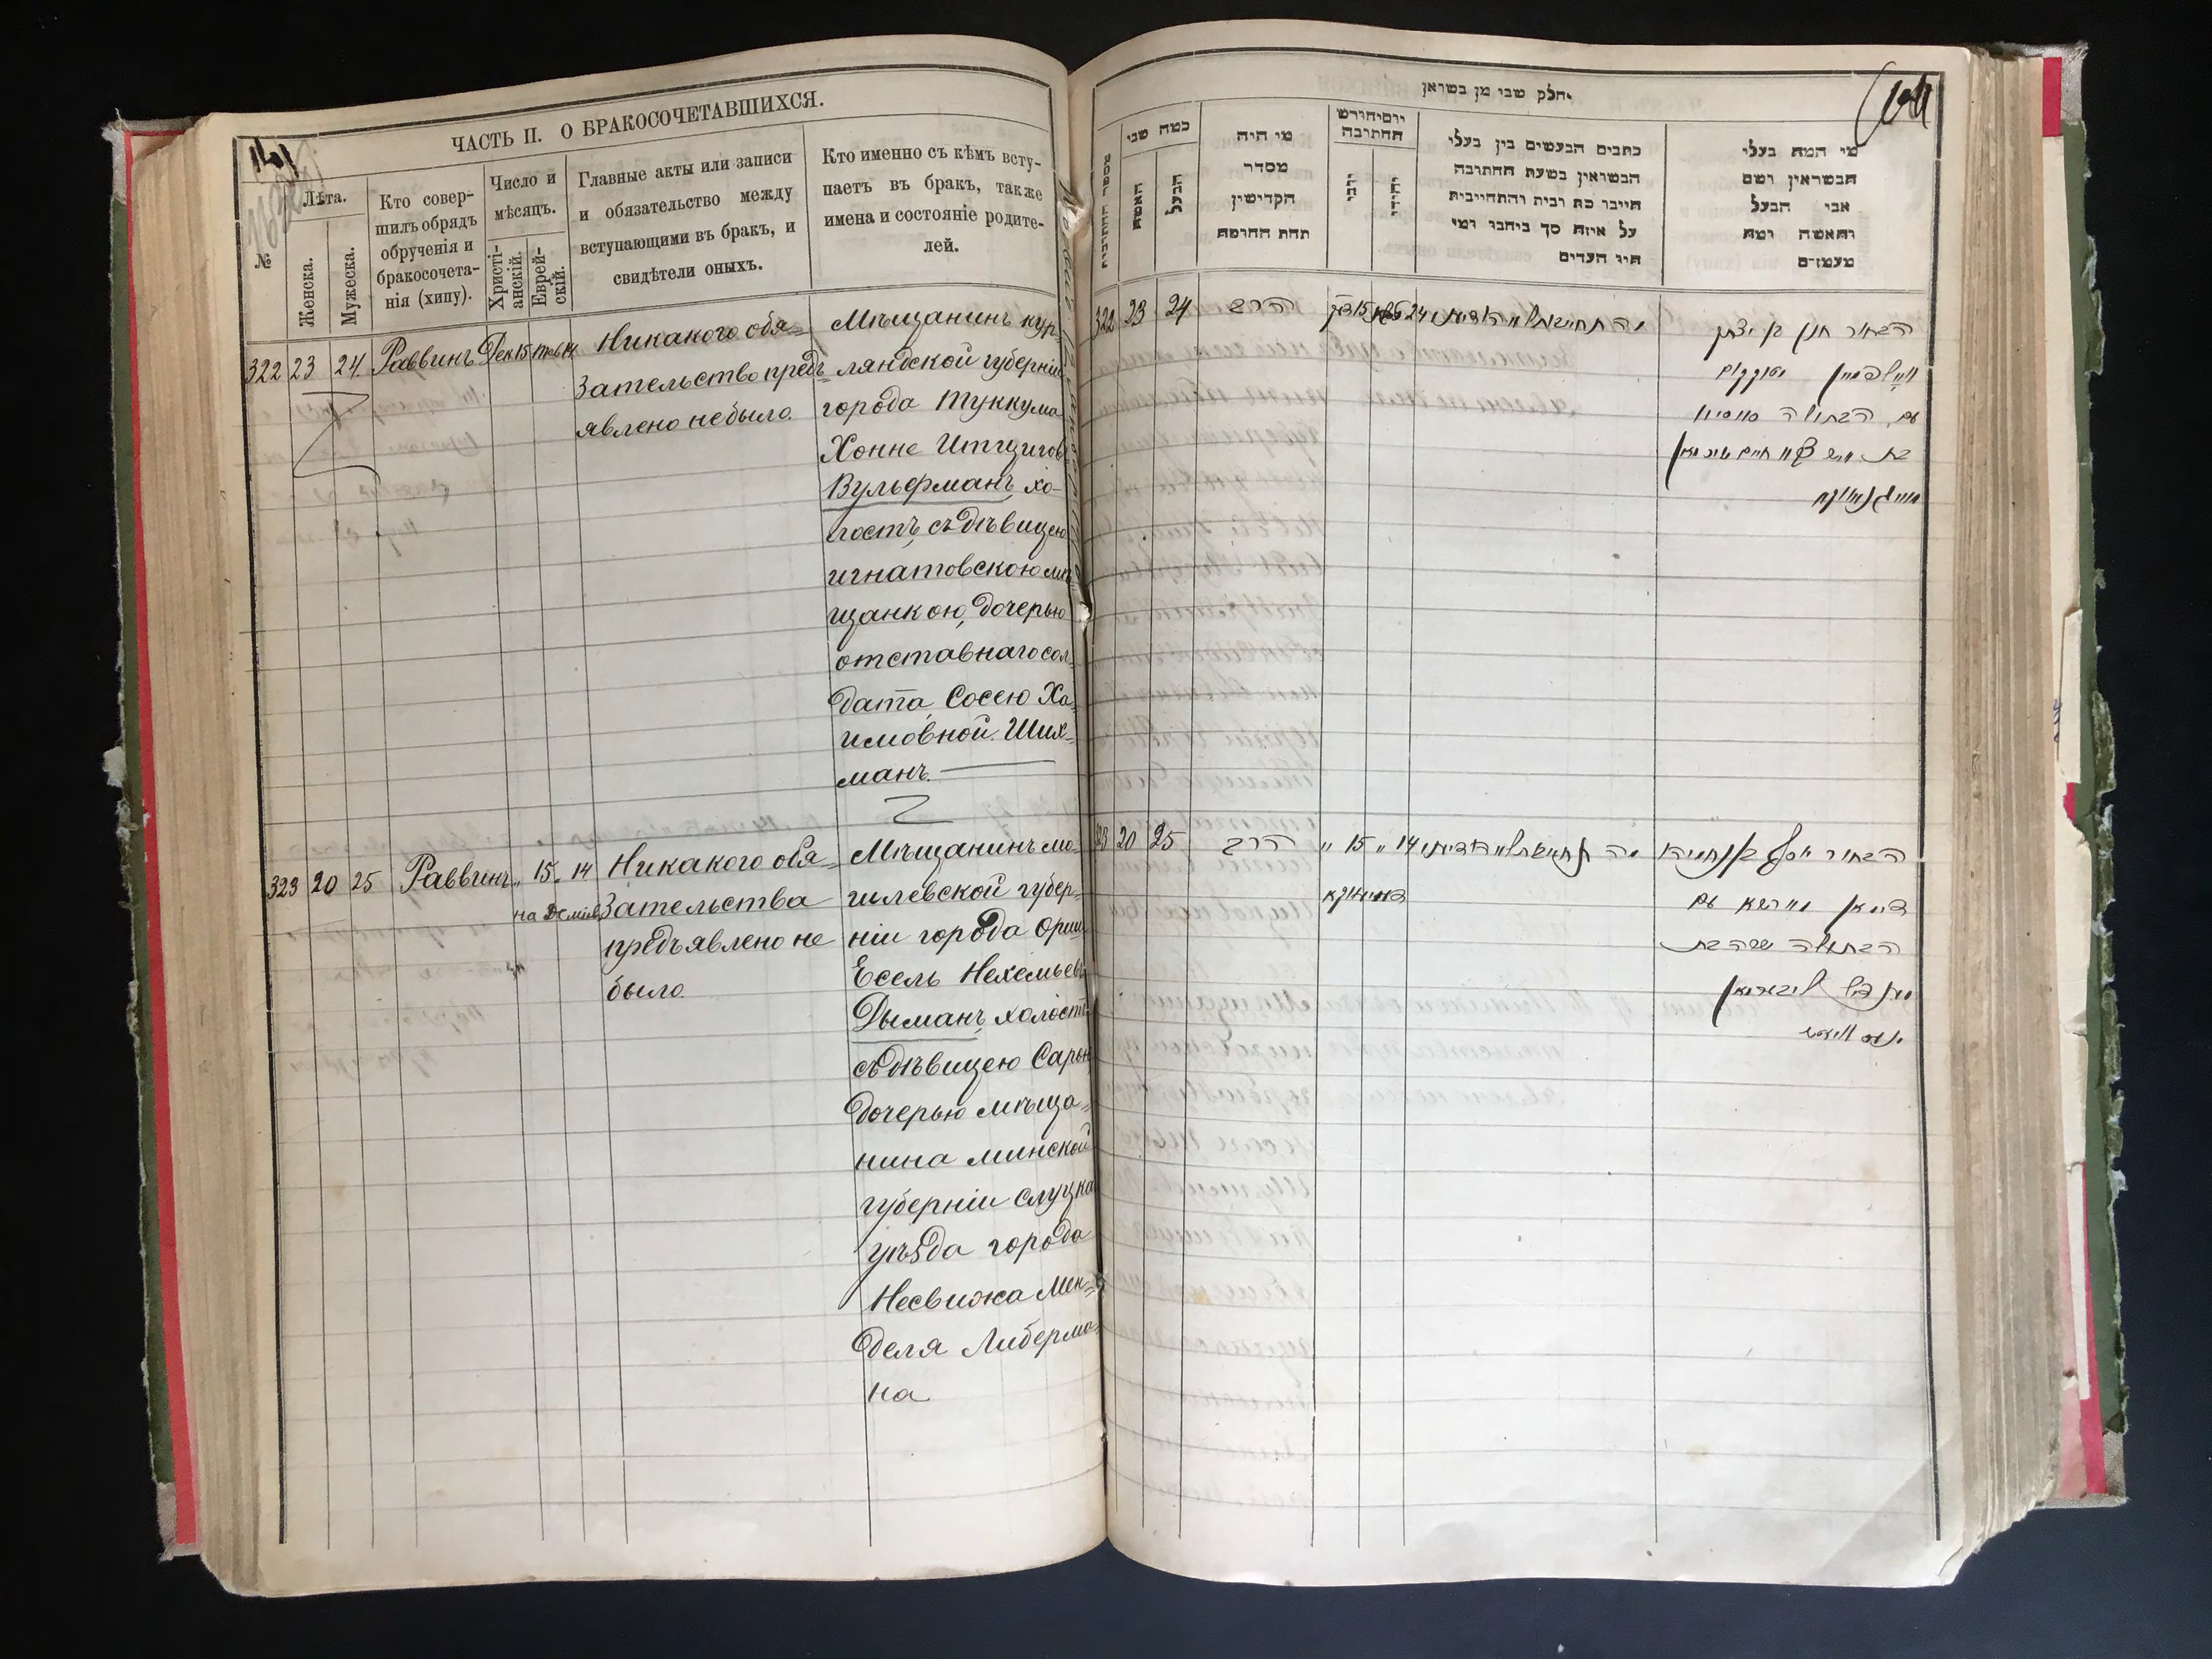 ЧАСТЬ II. О БРАКОСОЧЕТАВШИХСЯ.
№
Лѣта.
Женска.
Мужеска.
Кто совер-
шилъ обрядъ
обрученія и
бракосочета-
нія (хипу).
Число и
мѣсяцъ.
Христі-
анскій.
Еврей-
скій.
Главные акты или записи
и обязательство между
вступающими въ бракъ, и
свидѣтели оныхъ.
Кто именно съ кѣмъ всту-
паетъ въ бракъ, также
имена и состояніе родите-
лей.
322 23 24 Раввинъ Дек 15 Тев 14
Никакого обя-
зательство предъ-
явлено небыло.
Мѣщанинъ кур-
ляндской губерніи
города Туккума
Хонне Итцигов
Вульфманъ, хо-
лостъ, съ дѣвицею
игнатовскою мѣ-
щанкою, дочерью
отставнаго сол-
дата, Сосею Ха-
имовной Ших-
манъ.
323 20 25 Раввинъ „ 15 „ 14
на Демiев
Никакого обя-
зательства
предъявлено не
было
Мѣщанинъ мо-
гилевской губер-
ніи города Орши
Есель Нехемьевъ
Дыманъ, холостъ
съ дѣвицею Сарою
дочерью мѣща-
нина минской
губерніи слуцка
уѣзда города
Несвижа Мен-
деля Либерма-
на
חלק שני מן בשראן
מספר החתובית
כמה שני
האשה
הבעל
מי היה
מסדר
הקדישין
תחת החופה
יום יחודש
החתובה
יוני
יהודי
כתבים הנעשים בין בעלי
הנשואין בשעת החתובה
חייבו כת רבית והתחייבית
על איזה סך ביחבו ומי
היו העדים
מי המה בעלי
הנשואין ושם
אבי הבעל
והאשה ומה
מעמדם
322 23 24 הרב
הבחור חנן בן יצחק
וואלפמאן
עם הבתולה סאסיא
323 20 25 הרב „ 15 „ 14
דמיאווקא
הבחור יוסף בן נחמיה
דימאן מארשא עם
הבתולה שרה בת
מענדיל ליבערמאן